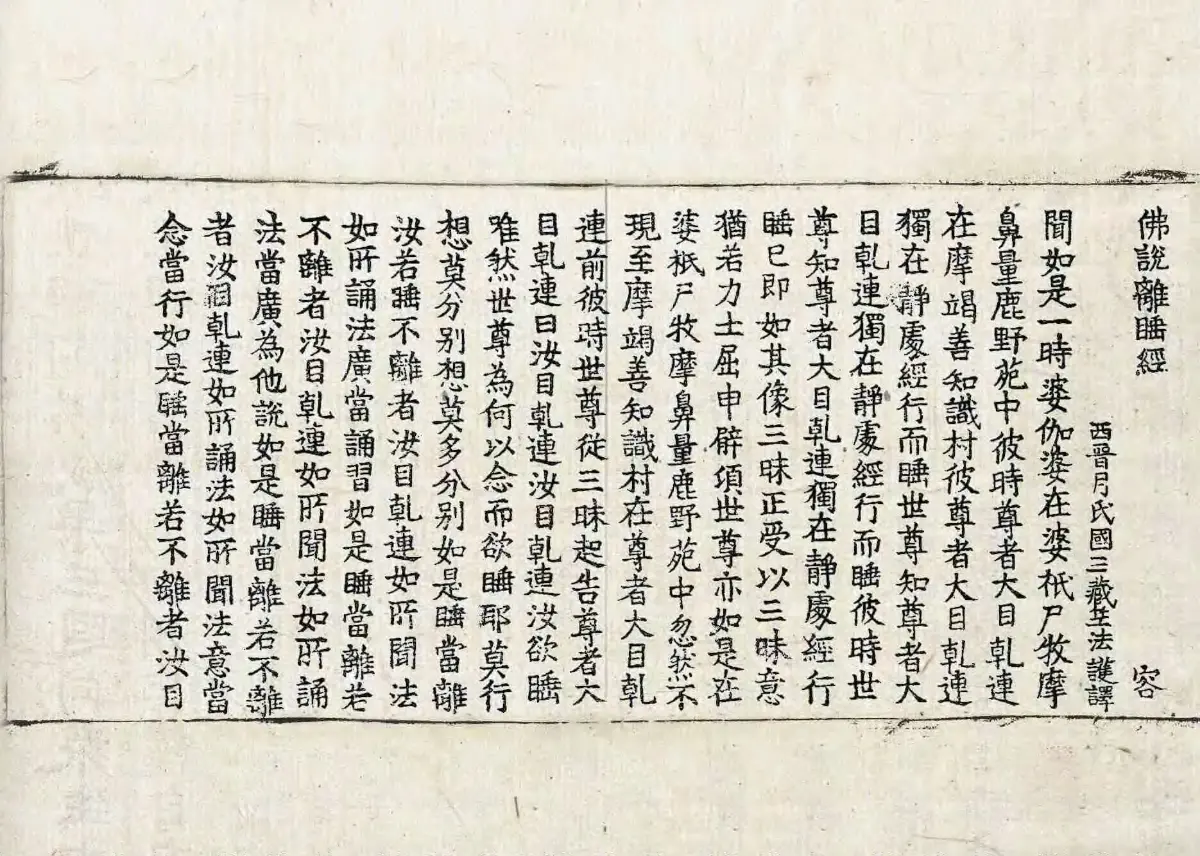 佛說離睡經
容
西晉月氏國三藏竺法護譯
聞如是一時婆伽婆在婆祇尸牧摩
鼻量鹿野苑中彼時尊者大目乹連
在摩竭善知識村彼尊者大目乹連
獨在靜處經行而睡世尊知尊者大
目乹連獨在靜處經行而睡彼時世
尊知尊者大目乹連獨在靜處經行
睡已即如其像三昧正受以三昧意
猶若力士屈申臂項世尊亦如是在
婆祇尸牧摩鼻量鹿野苑中忽然不
現至摩竭善知識村在尊者大目乹
連前彼時世尊從三昧起告尊者大
目乹連曰汝目乹連汝目乹連汝欲睡
唯然世尊為何以念而欲睡耶莫行
想莫分別想莫多分別如是睡當離
汝若睡不離者汝目乹連如所聞法
如所誦法廣當誦習如是睡當離若
不離者汝目乹連如所聞法如所誦
法當廣為他說如是睡當離若不離
者汝目乹連如所誦法如所聞法意當
念當行如是睡當離若不離者汝目